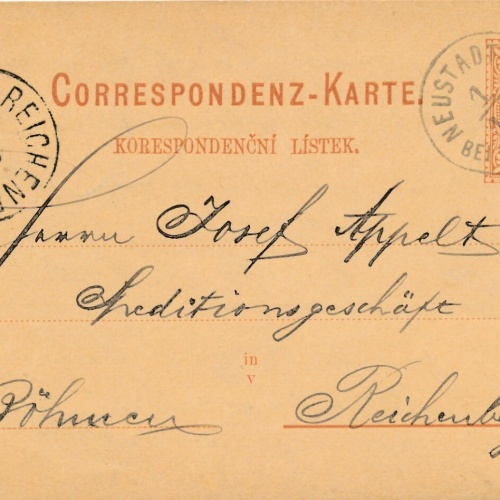 CORRESPONDENZ-KARTE.
KORESPONDENČNÍ LÍSTEK.
NEUSTAD
BEI
REICHENA
Herrn Josef Appelt
Speditionsgeschäft
in
v
Böhmen
Reichenb